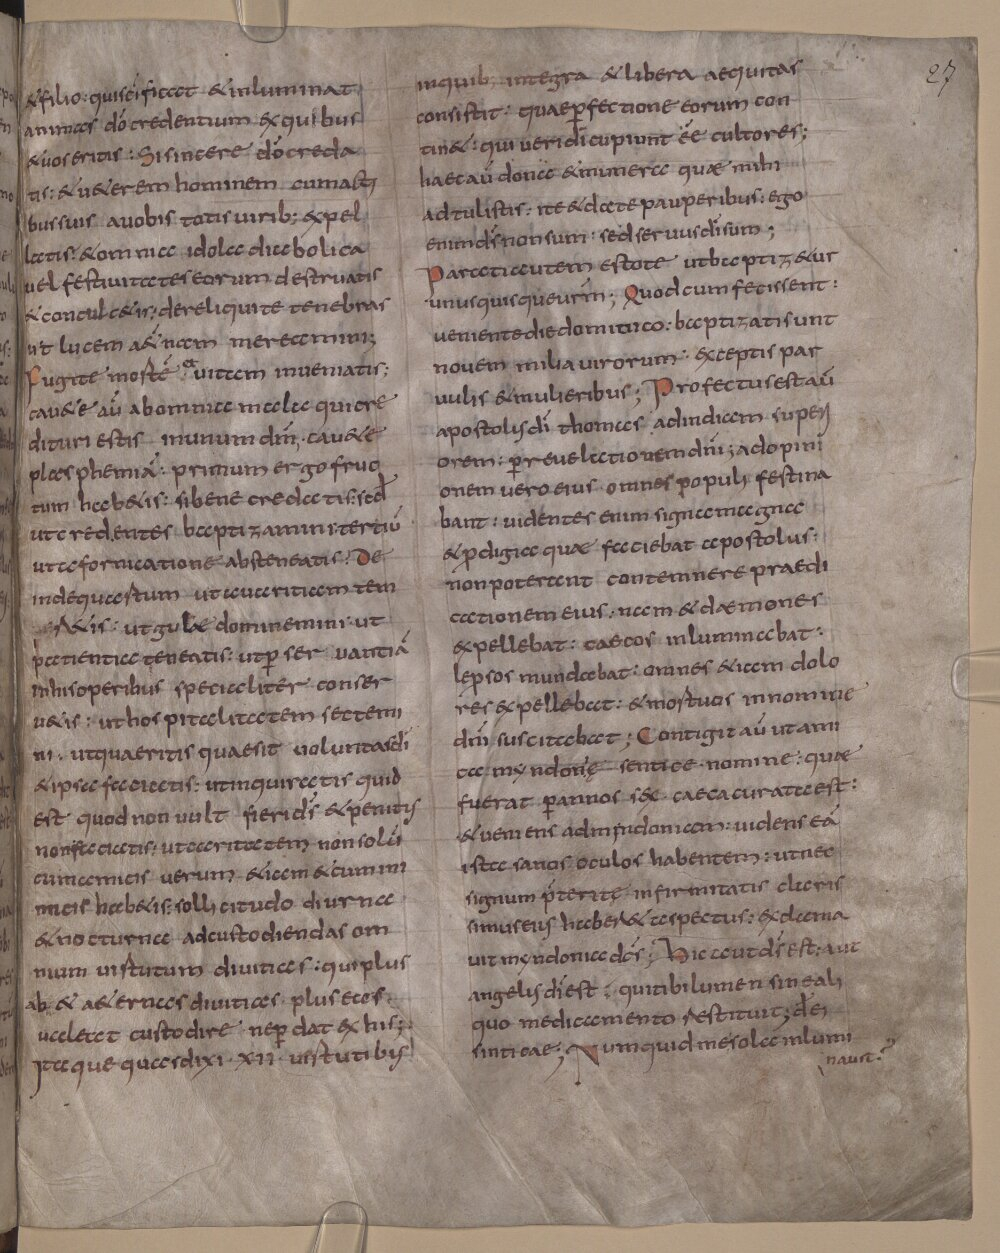 27
& filio. qui scificat & inluminat
animas dō credentium ex quibus
& uos eritis. Si sincere dō creda
tis. & u&erem hominem cum actị
bus suis a uobis totis uirib; expel
latis. & omnia idola diabolica
uel festiuitates eorum destruatis
& conculc&is; dereliquite tenebras
ut lucem a&nam mereamini;
Fugite mostē. a uitam inueniatis;
cau&e aū ab omnia mala qui cre
dituri estis in unum dm̄. cau&e
plasphemiā. primum ergo fruc
tum hab&is. si bene credatis. sed
ut credentes baptizamini. tertiū
ut a fornicatione absteneatis. De
inde quastum ut auaritiam tem
&is. ut gulae dominemini. ut
patientia teneatis. ut per seruantiā
in his operibus specialiter conser
u&is. ut hospitalitatem sectemi
ni. ut quaeritis quae sit uoluntas di
& ipsa faciatis. ut inquiratis quid
est quod non uult fieri ds̄ & penitus
non faciatis. ut caritatem non solū
cum amicis uerum &iam & cum ini
micis hab&is. sollicitudo diurna
& nocturna ad custodiendas om
nium uistutum diuitias. qui plus
ab& a&ernas diuitias plus eas
ualet custodire ne perdat ex his;
Itaque quas dixi. xii. uistutibus
in quib; integra & libera aequitas
consistit. quae perfectione eorum con
tin&. qui ueri di cupiunt ēe cultores;
haec aū dona & munera quae mihi
adtulistis. ite & date pauperibus. ego
enim ds̄ non sum. sed seruus di sum;
Parati autem estote ut baptiz&ur
unusquisque urm̄; Quod cum fecissent.
ueniente die dominico. baptizati sunt
nouem milia uirorum. exceptis par
uulis & mulieribus; Profectus est aū
apostolis di thomas ad indicam superi
orem. per reuelationem dni; ad opini
onem uero eius omnes populi festina
bant. uidentes enim signa magna
& prodigia quae faciebat apostolus.
non poterant contemnere praedi
cationem eius. nam & daemones
expellebat. caecos inluminabat.
lepsos mundabat. omnes &iam dolo
res expellebat. & mostuos in nomine
dni suscitabat; Contigit aū ut ami
ca myndonię sentice nomine. quae
fuerat per annos sex caeca curata est.
& ueniens ad mindoniam. uidens eā
ista sanos oculos habentem. ut nec
signum pteritę infirmitatis claris
simus eius haber& aspectus. exclama
uit myndonia dcs; Hic aut ds̄ est. aut
angelis di est. qui tibi lumen sine ali
quo medicamento restituit; dei
sinticae; Numquid me sola inlumi
nauit?